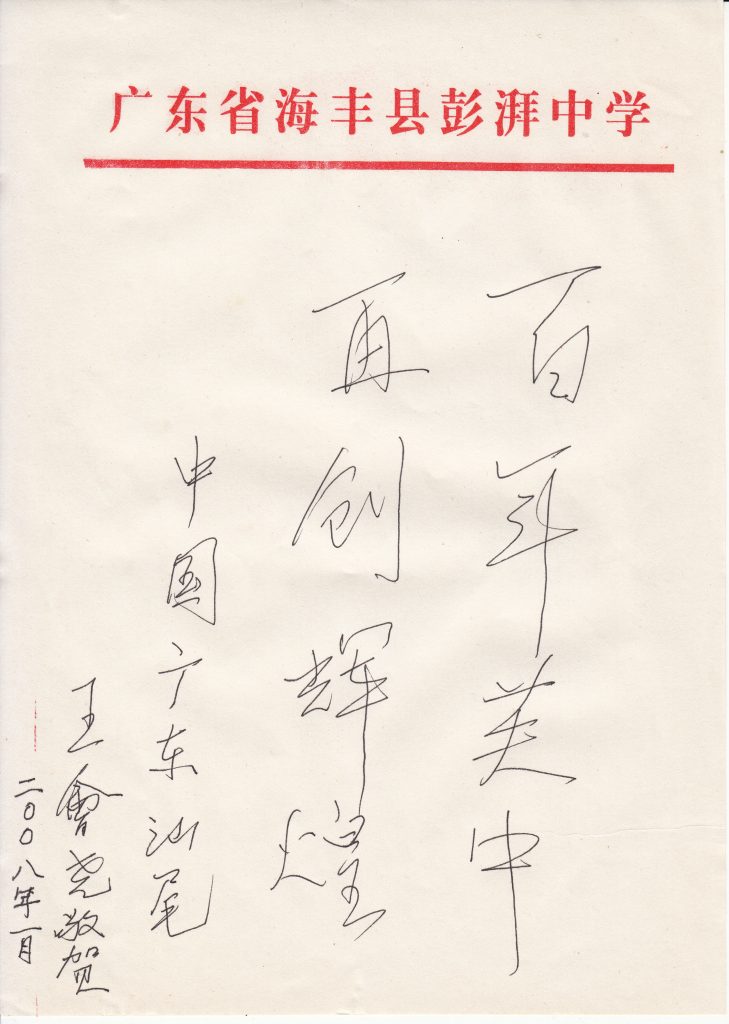 广东省海丰县彭湃中学
百年英中
再创辉煌
中国广东汕尾
王會尧敬贺
二〇〇八年一月